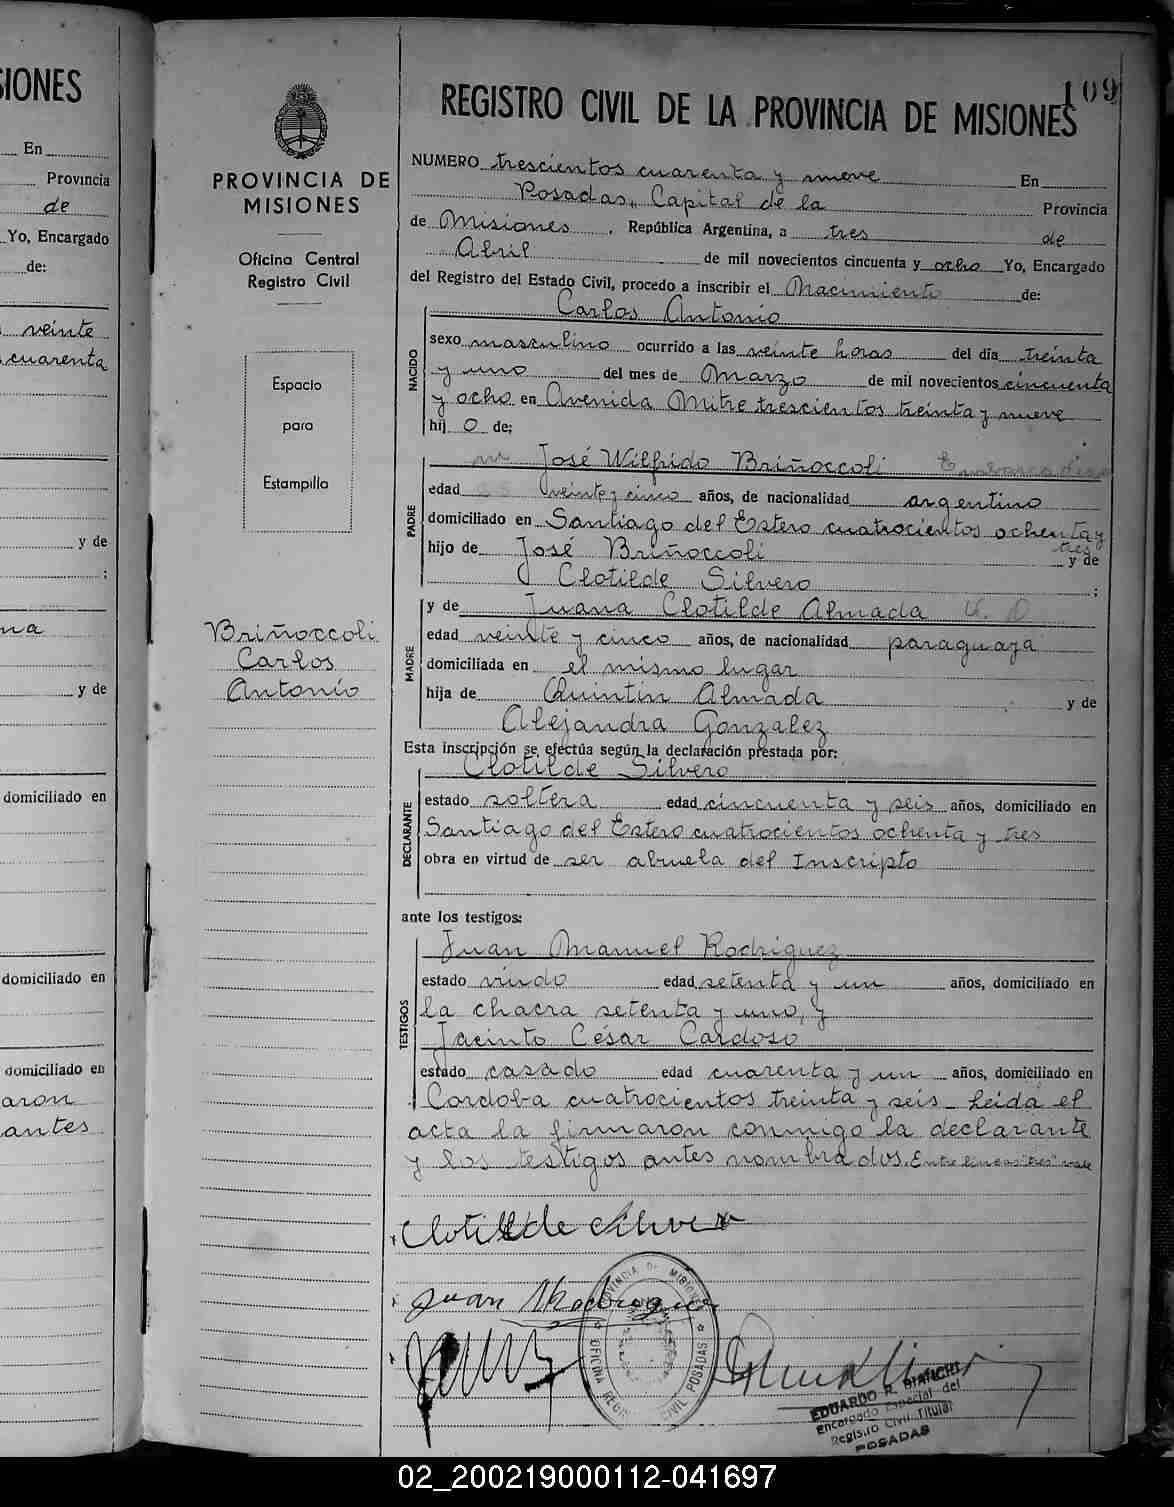 SIONES
En
Provincia
de
Yo, Encargado
de:
veinte
cuarenta
y de
;
na
y de
domiciliado en
domiciliado en
domiciliado en
aron
antes
PROVINCIA DE
MISIONES
Oficina Central
Registro Civil
Espacio
para
Estampilla
Briñoccoli
Carlos
Antonio
109
REGISTRO CIVIL DE LA PROVINCIA DE MISIONES
NUMERO trescientos cuarenta y nueve En
Posadas, Capital de la Provincia
de Misiones, República Argentina, a tres de
Abril de mil novecientos cincuenta y ocho Yo, Encargado
del Registro del Estado Civil, procedo a inscribir el Nacimiento de:
Carlos Antonio
NACIDO
sexo masculino ocurrido a las veinte horas del día treinta
y uno del mes de Marzo de mil novecientos cincuenta
y ocho en Avenida Mitre trescientos treinta y nueve
hij o de;
PADRE
José Wilfrido Briñoccoli
edad veinte y cinco años, de nacionalidad argentino
domiciliado en Santiago del Estero cuatrocientos ochenta y
tres
hijo de José Briñoccoli y de
Clotilde Silvero ;
MADRE
y de Juana Clotilde Almada
edad veinte y cinco años, de nacionalidad paraguaya
domiciliada en el mismo lugar
hija de Quintin Almada y de
Alejandra Gonzalez
Esta inscripción se efectúa según la declaración prestada por:
Clotilde Silvero
DECLARANTE
estado soltera edad cincuenta y seis años, domiciliado en
Santiago del Estero cuatrocientos ochenta y tres
obra en virtud de ser abuela del Inscripto
ante los testigos:
TESTIGOS
Juan Manuel Rodriguez
estado viudo edad setenta y un años, domiciliado en
la chacra setenta y uno, y
Jacinto César Cardoso
estado casado edad cuarenta y un años, domiciliado en
Cordoba cuatrocientos treinta y seis - Leida el
acta la firmaron conmigo la declarante
y los testigos antes nombrados. Entre lineas "tres" vale
Clotilde Silvero
Juan Rodriguez
PROVINCIA DE MISIONES
OFICINA REGISTRO CIVIL POSADAS
EDUARDO R. BIANCHI
Encargado Especial del
Registro Civil Titular
POSADAS
02_200219000112-041697